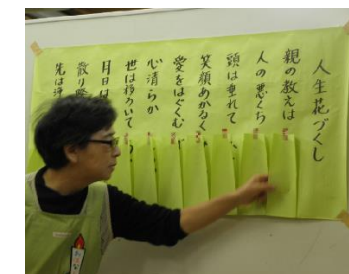 人生花づくし
親の教えは
人の悪くち
頭は垂れて
笑顔あかるく
愛をはぐくむ
心清らか
世は移ろいて
月日は
散り際
先は浄